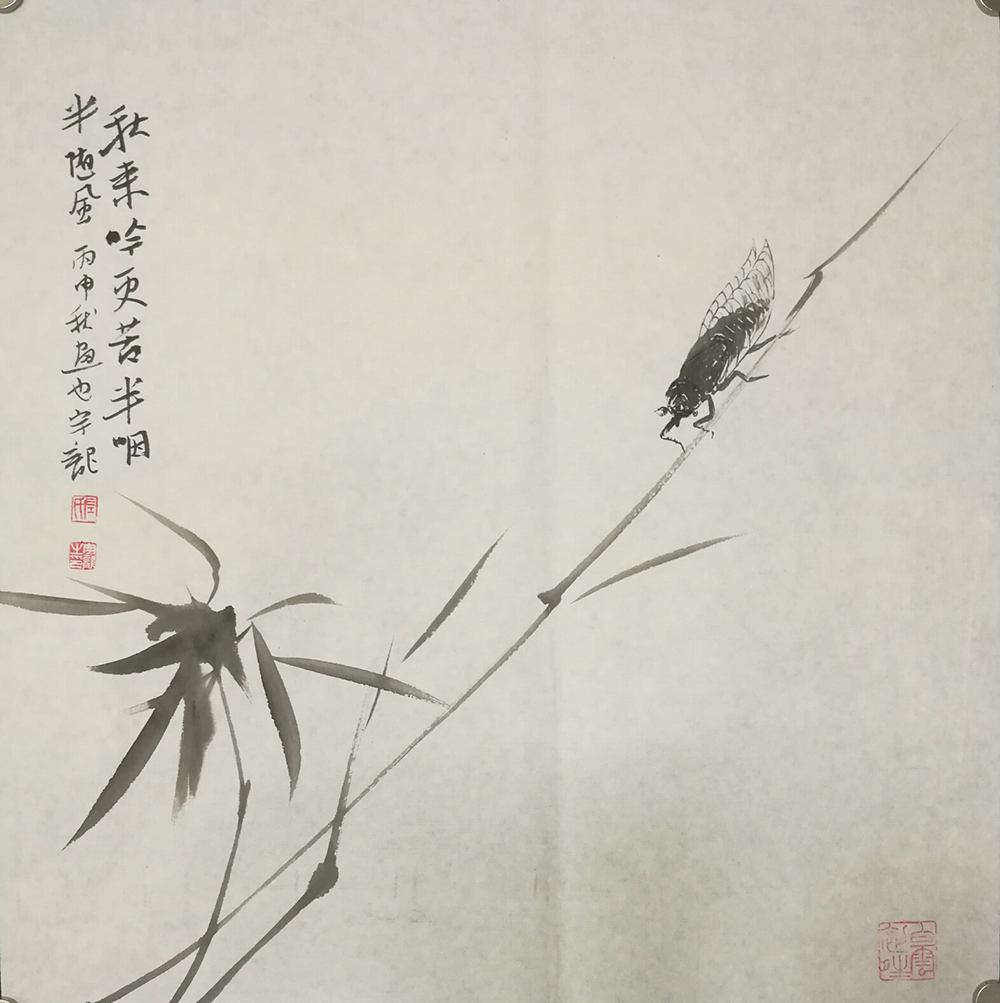 秋来吟更苦半咽
半随风 丙申秋画也宇记